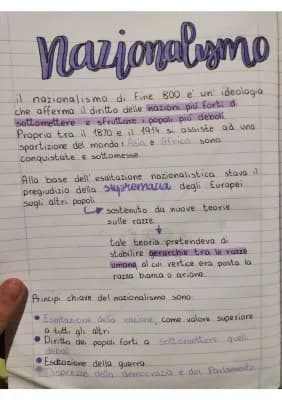 Nazionalismo
il nazionalismo di fine 800 e' un' ideologia
che afferma il diritto delle nazioni più forti di
sottomettere e sfruttare i popoli più deboli.
Proprio tra il 1870 e il 1914 si assiste ad una
spartizione del mondo: Asia e Africa sono
conquistate e sottomesse.
Alla base dell' esaltazione nazionalistica stava il
pregiudizio della supremazia degli Europei
sugli altri popoli
sostenuto da nuove teorie
sulle razze
tale teoria pretendeva di
stabilire gerarchie tra le razze
umane, al cui vertice era posta la
razza bianca o ariana.
Principi chiave del nazionalismo sono:
Esaltazione della nazione, come valore superiore
a tutti gli altri
Diritto dei popoli forti a sottomettere quelli
deboli
Esaltazione della guerra
Disprezzo della democrazia e del Parlamento